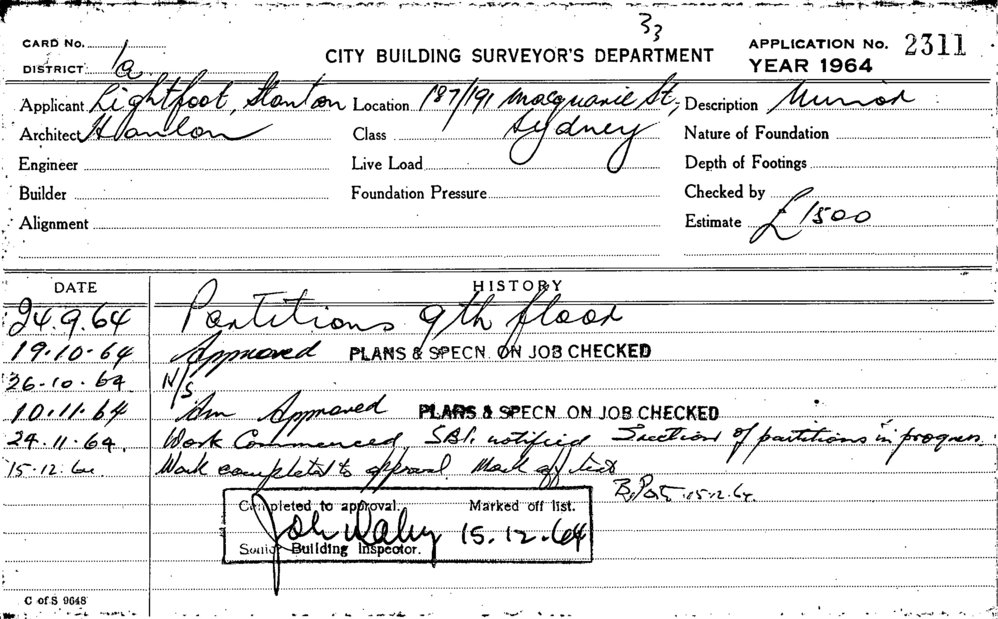 33
CARD No.
CITY BUILDING SURVEYOR'S DEPARTMENT
APPLICATION No. 2311
DISTRICT 1a
YEAR 1964
Applicant Lightfoot, Stanton Location 187/191 Macquarie St, Description Minor
Architect Hanlon Class Sydney Nature of Foundation
Engineer Live Load Depth of Footings
Builder Foundation Pressure Checked by
Alignment Estimate £1500
DATE HISTORY
24.9.64 Partitions 9th floor
19.10.64 Approved PLANS & SPECN. ON JOB CHECKED
26.10.64 N/S
10.11.64 Am Approved PLANS & SPECN. ON JOB CHECKED
24.11.64. Work Commenced, SBI. notified Erection of partitions in progress.
15.12.64 Work completed to approval Mark off list
15.12.64.
Completed to approval. Marked off list.
15.12.64
Senior Building Inspector.
C of S 9648